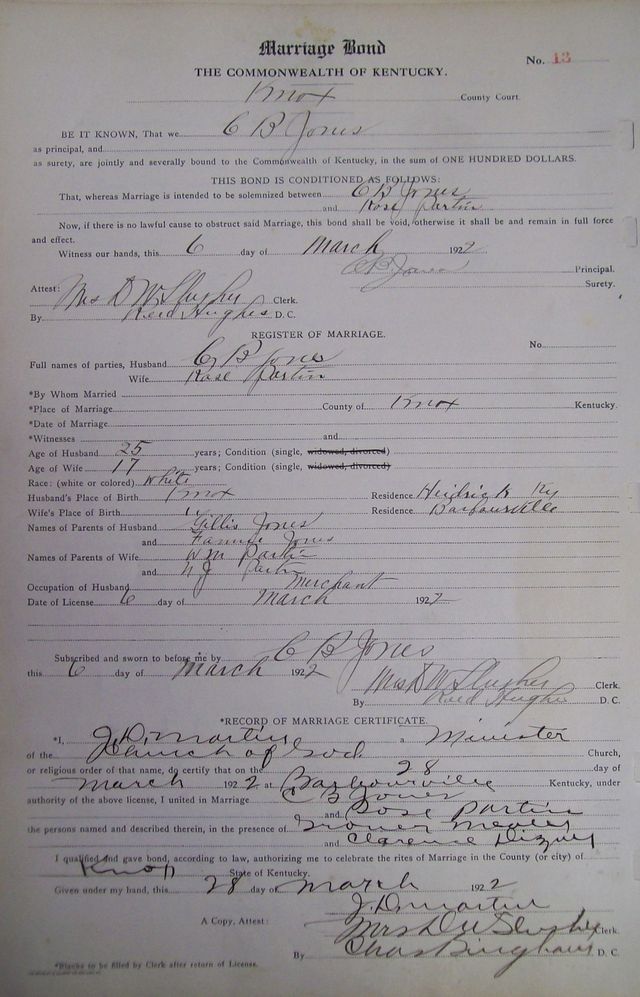 Marriage Bond
No. 13
THE COMMONWEALTH OF KENTUCKY.
Knox County Court.
BE IT KNOWN, That we C B Jones
as principal, and
as surety, are jointly and severally bound to the Commonwealth of Kentucky, in the sum of ONE HUNDRED DOLLARS.
THIS BOND IS CONDITIONED AS FOLLOWS:
That, whereas Marriage is intended to be solemnized between C B Jones
and Rose Partin
Now, if there is no lawful cause to obstruct said Marriage, this bond shall be void, otherwise it shall be and remain in full force
and effect.
Witness our hands, this 6 day of March 1922
C B Jones Principal.
Surety.
Attest:
Mrs D W Slusher Clerk.
By Reed Hughes D. C.
REGISTER OF MARRIAGE.
No.
Full names of parties, Husband C B Jones
Wife Rose Partin
*By Whom Married
*Place of Marriage County of Knox Kentucky.
*Date of Marriage
*Witnesses and
Age of Husband 25 years; Condition (single, widowed, divorced)
Age of Wife 17 years; Condition (single, widowed, divorced)
Race: (white or colored) White
Husband's Place of Birth Knox Residence Heidrick Ky
Wife's Place of Birth " Residence Barbourville
Names of Parents of Husband Gillis Jones
and Fannie Jones
Names of Parents of Wife Wm Partin
and N J Partin
Occupation of Husband Merchant
Date of License 6 day of March 1922
Subscribed and sworn to before me by C B Jones
this 6 day of March 1922
Mrs D W Slusher Clerk.
By Reed Hughes D C.
*RECORD OF MARRIAGE CERTIFICATE.
*I, J. D. Martin a Minister
of the Church of God Church,
or religious order of that name, do certify that on the 28 day of
March 1922 at Barbourville Kentucky, under
authority of the above license, I united in Marriage C B Jones
and Rose Partin
the persons named and described therein, in the presence of Grover
and Clarence Dizney
I qualified and gave bond, according to law, authorizing me to celebrate the rites of Marriage in the County (or city) of
Knox State of Kentucky.
Given under my hand, this 28 day of March 1922
J. D. Martin
A Copy, Attest: Mrs D W Slusher Clerk.
By Chas Bingham D. C.
*Blanks to be filled by Clerk after return of License.